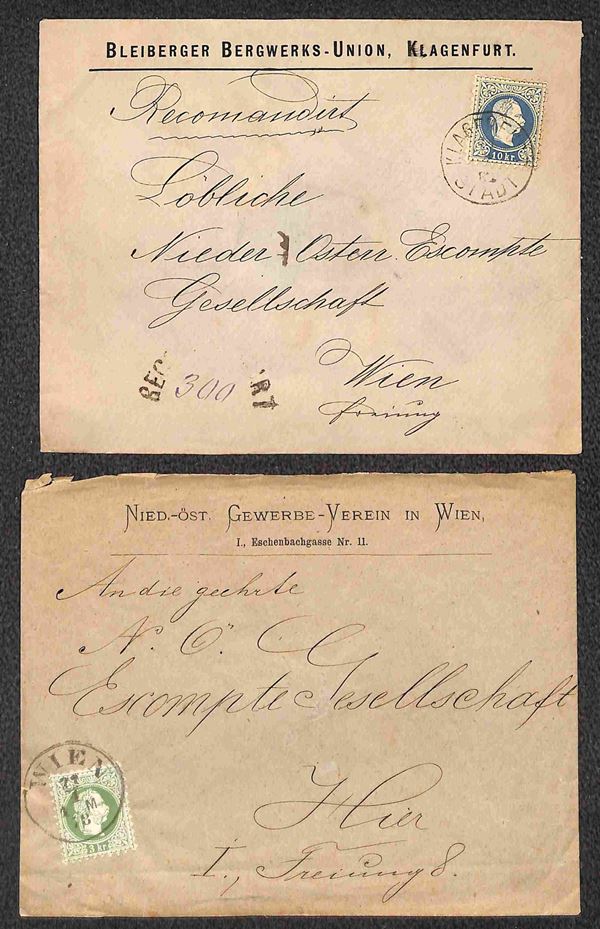 BLEIBERGER BERGWERKS-UNION, KLAGENFURT.
Recomandirt
10 kr.
STADT
Löbliche
Nieder-Österr. Escompte
Gesellschaft
Wien
Freiung
300
NIED.-ÖST. GEWERBE-VEREIN IN WIEN,
I., Eschenbachgasse Nr. 11.
An die geehrte
N. Ö.
Escompte Gesellschaft
WIEN
3 kr.
Hier
I., Freiung 8.